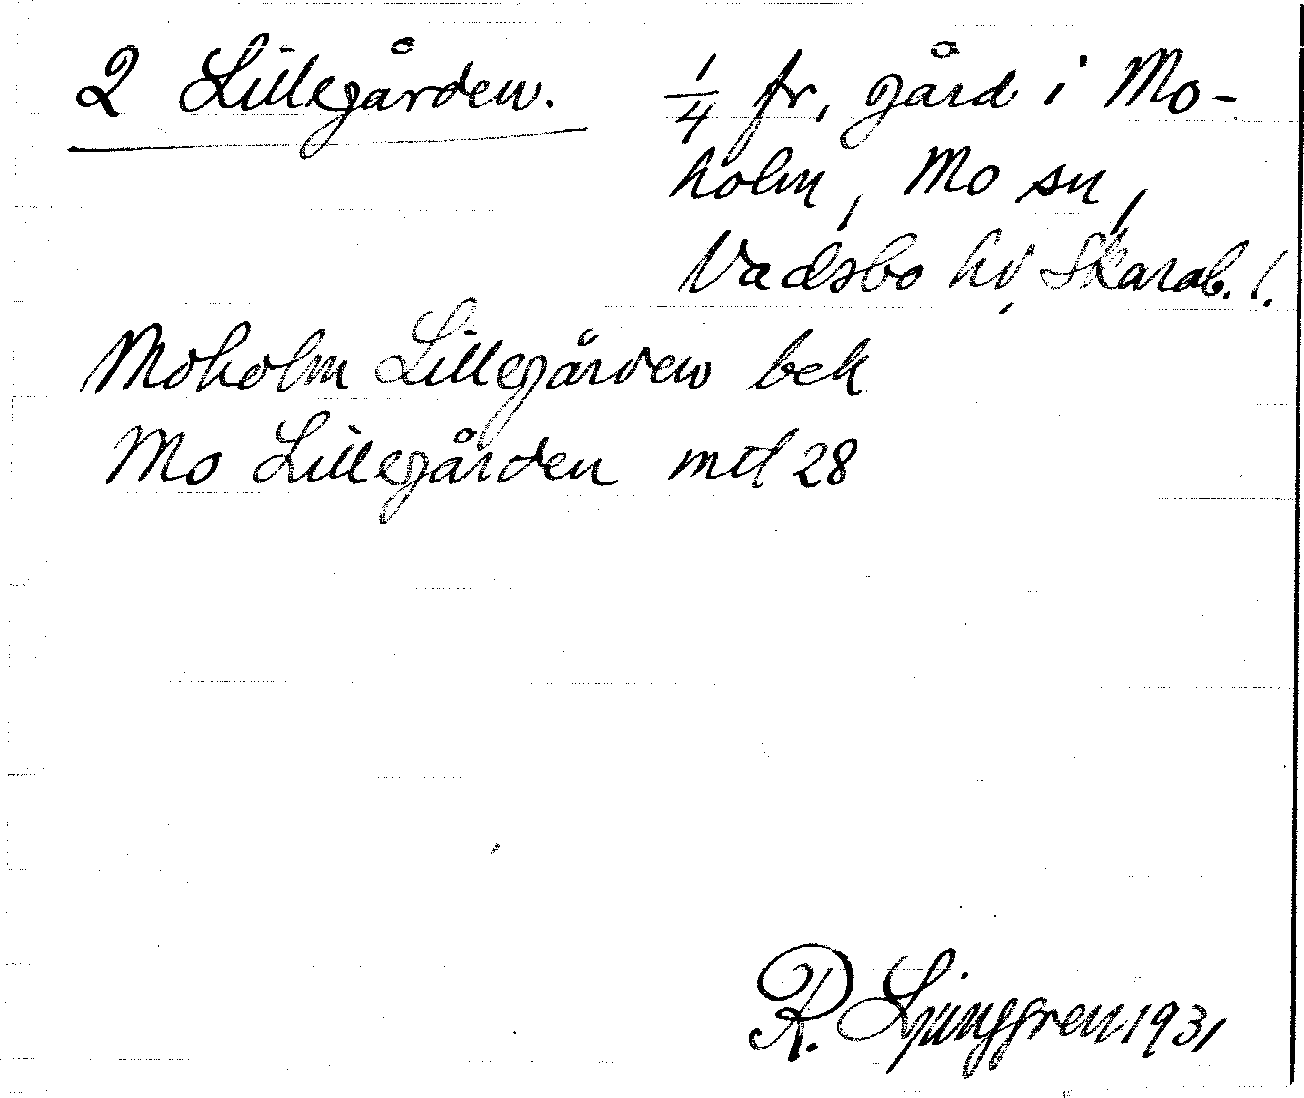 2 Lillegården. 1/4 fr. gård i Mo-
holm, Mo sn,
Vadsbo hd, Skarab. l.
Moholm Lillegården bek
Mo Lillegården mtl 28
R. Ljunggren 1931